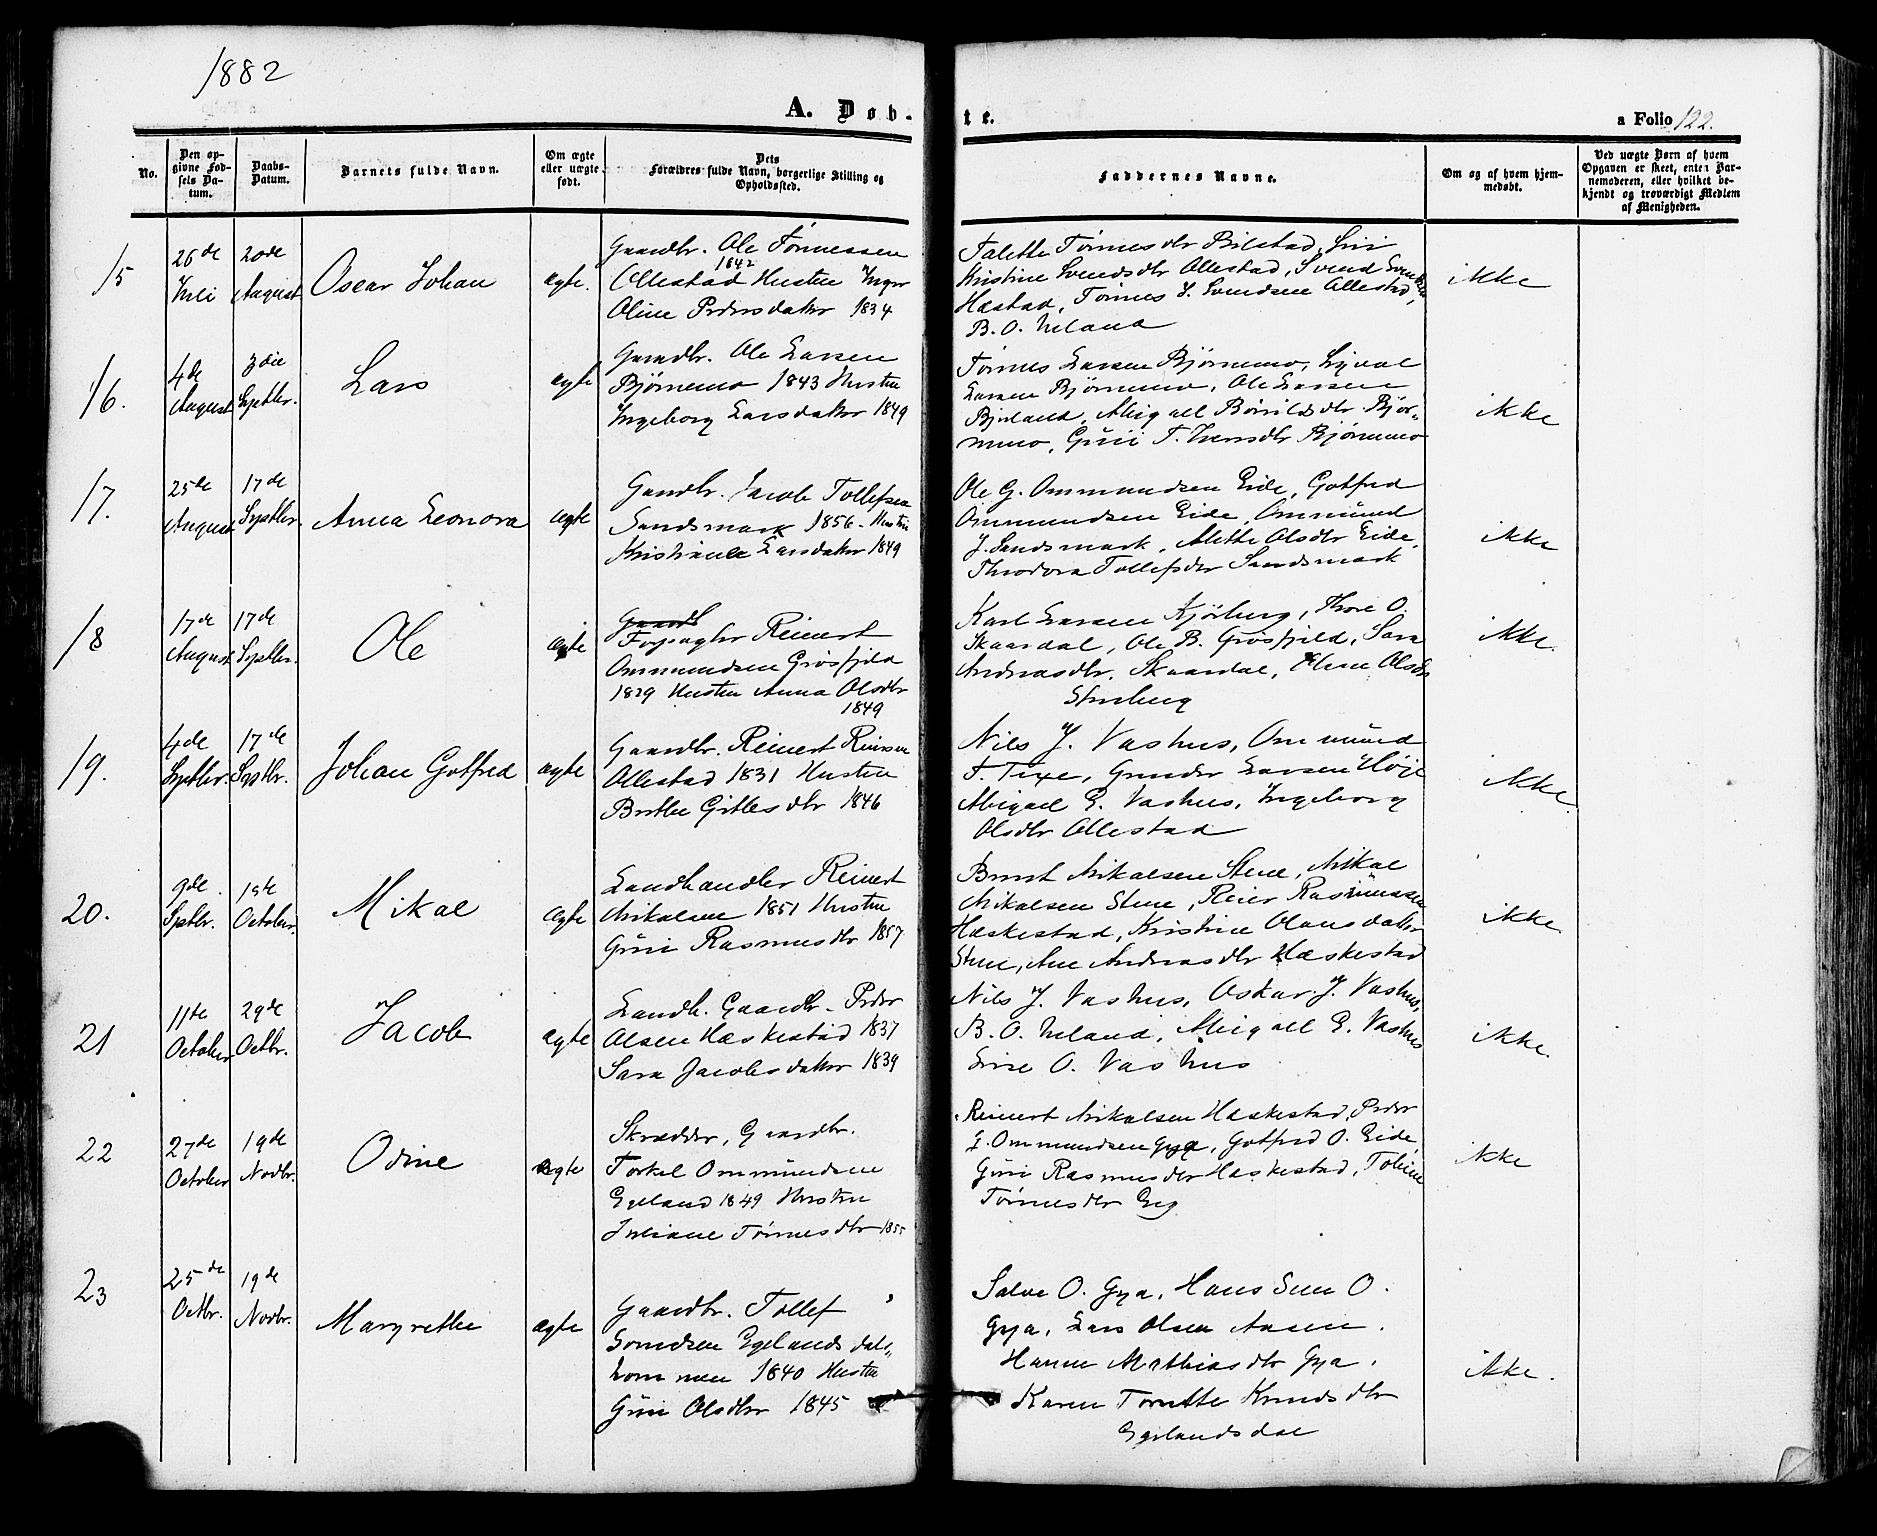 1882
A. Døb-
te.
a Folio 122.
No.
Den op-
givne Fød-
sels Da-
tum.
Daabs-
Datum.
Barnets fulde Navn.
Om ægte
eller uægte
født.
Dets
Forældres fulde Navn, borgerlige Stilling og
Opholdssted.
Faddernes Navne.
Om og af hvem hjem-
medøbt.
Ved uægte Børn af hvem
Opgaven er skeet, enten Bar-
nemoderen, eller hvilket be-
kjendt og troværdigt Medlem
af Menigheden.
15
26de
Juli
20de
August
Oscar Johan
ægte.
Gaardbr. Ole Tønnessen
1842
Ollestad Hustru Inger
Oline Pedersdatter 1834
Talette Tønnesdtr Bilstad, Siri
Kristine Svendsdtr Ollestad, Svend Svendsen
Hæstad, Tønnes J. Svendsen Ollestad,
B. O. Ueland
ikke
16.
4de
August
3die
Septbr.
Lars
ægte
Gaardbr. Ole Larsen
Bjørnemo 1843 Hustru
Ingeborg Larsdatter 1849
Tønnes Larsen Bjørnemo, Sigval
Larsen Bjørnemo, Ole Larsen
Bjuland, Abigael Bårildsdtr Bjør-
nemo, Guri T. Iversdtr Bjørnemo
ikke
17.
25de
August
17de
Septbr.
Anna Leonora
ægte
Gaardbr. Jacob Tollefsen
Sandsmark 1856 - Hustru
Kristiane Larsdatter 1849
Ole G. Ommundsen Eide, Gotfred
Ommundsen Eide, Ommund
J. Sandsmark, Alette Olsdtr Eide,
Theodora Tollefsdtr Sandsmark
ikke
18
17de
August
17de
Septbr.
Ole
ægte
Gaardb
Forpagter Reinert
Ommundsen Grøsfjeld
1829 Hustru Anna Olsdtr
1849
Karl Larsen Kjørberg, Thore O.
Skaardal, Ole B. Grøsfjeld, Sara
Andreasdtr. Skaardal, Oline Olsdtr
Stueberg
ikke.
19.
4de
Septbr.
17de
Septbr.
Johan Gotfred
ægte
Gaardbr. Reinert Reiersen
Ollestad 1831 Hustru
Berthe Gitlesdtr 1846
Nils J. Vashus, Ommund
T. Texe, Gunder Larsen Høje
Abigael E. Vashus, Ingeborg
Olsdtr Ollestad
ikke.
20.
9de
Septbr.
1ste
October.
Mikal
ægte
Landhandler Reinert
Mikalsen 1851 Hustru
Guri Rasmusdtr 1857
Bernt Mikalsen Stene, Mikal
Mikalsen Stene, Reier Rasmussen
Hæskestad, Kristine Olausdatter
Stene, Ane Andreasdtr Hæskestad
ikke.
21
11te
October
29de
Octbr.
Jacob
ægte
Landh. Gaardbr. Peder
Olsen Hæskestad 1837
Sara Jacobsdatter 1839
Nils J. Vashus, Oskar J. Vashus,
B. O. Ueland, Abigael E. Vashus
Sine O. Vashus
ikke.
22
27de
October
19de
Novbr.
Odine
ægte
Skrædder, Gaardbr.
Torkel Ommundsen
Egeland 1849 Hustru
Juliane Tønnesdtr 1855
Reinert Mikalsen Hæskestad, Peder
G. Ommundsen Gya, Gotfred O. Eide,
Guri Rasmusdtr Hæskestad, Tobine
Tønnesdtr Eeg
ikke
23
25de
Octbr.
19de
Novbr.
Margrethe
ægte
Gaardbr. Tollef
Svendsen Egelandsdals-
lommen 1840 Hustru
Guri Olsdtr 1845
Salve O. Gya, Hans Sem O.
Gya, Lars Olsen Aasen.
Hanne Mathiasdtr Gya,
Karen Tomette Knudsdtr
Egelandsdal
ikke.